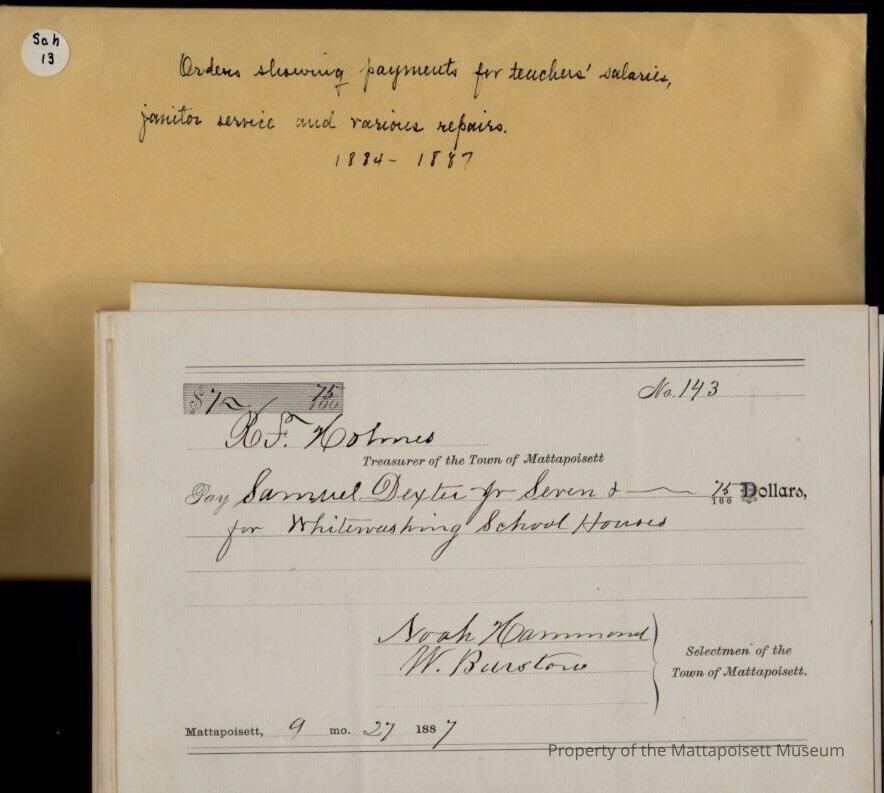 Sch
13
Orders showing payments for teachers' salaries,
janitor service and various repairs.
1884 - 1887
$7 75/100
No. 143
R. F. Holmes
Treasurer of the Town of Mattapoisett
Pay Samuel Dexter Jr Seven & 75/100 Dollars,
for Whitewashing School Houses
Noah Hammond
W. Barstow
Selectmen of the
Town of Mattapoisett.
Mattapoisett, 9 mo. 27 1887
Property of the Mattapoisett Museum